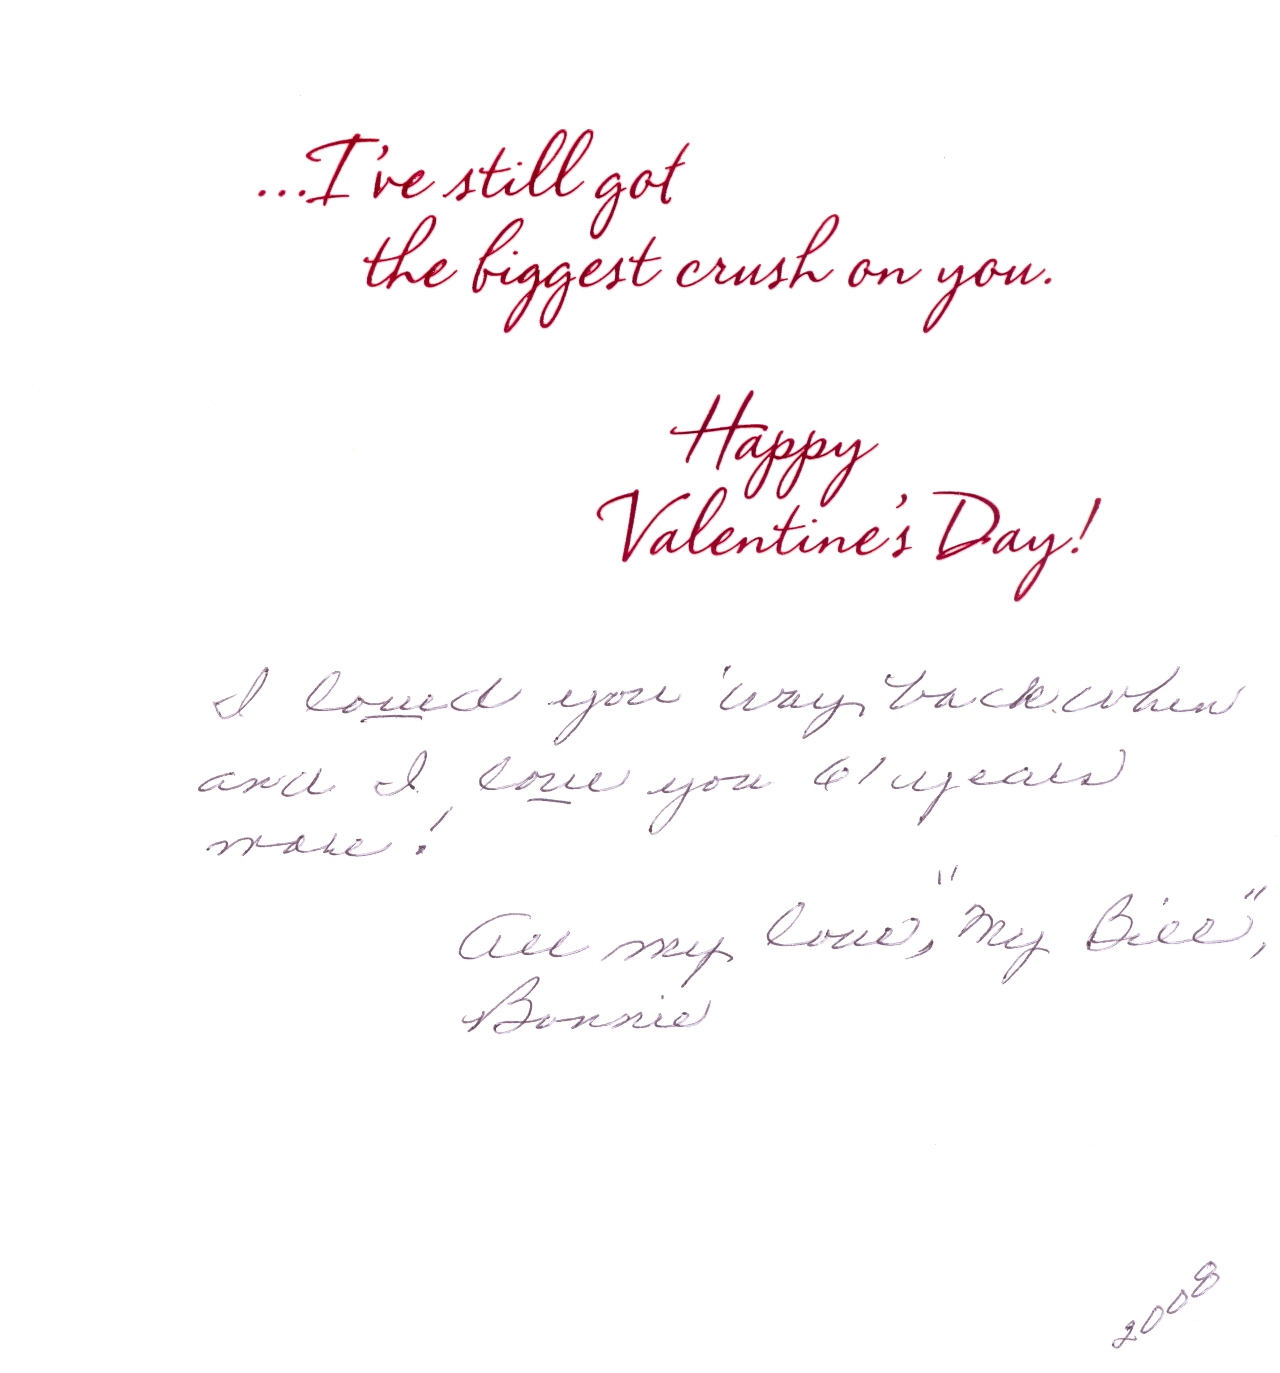 ...I've still got
the biggest crush on you.
Happy
Valentine's Day!
I loved you 'way back when
and I love you 61 years
more!
All my love, "My Bill",
Bonnie
2008